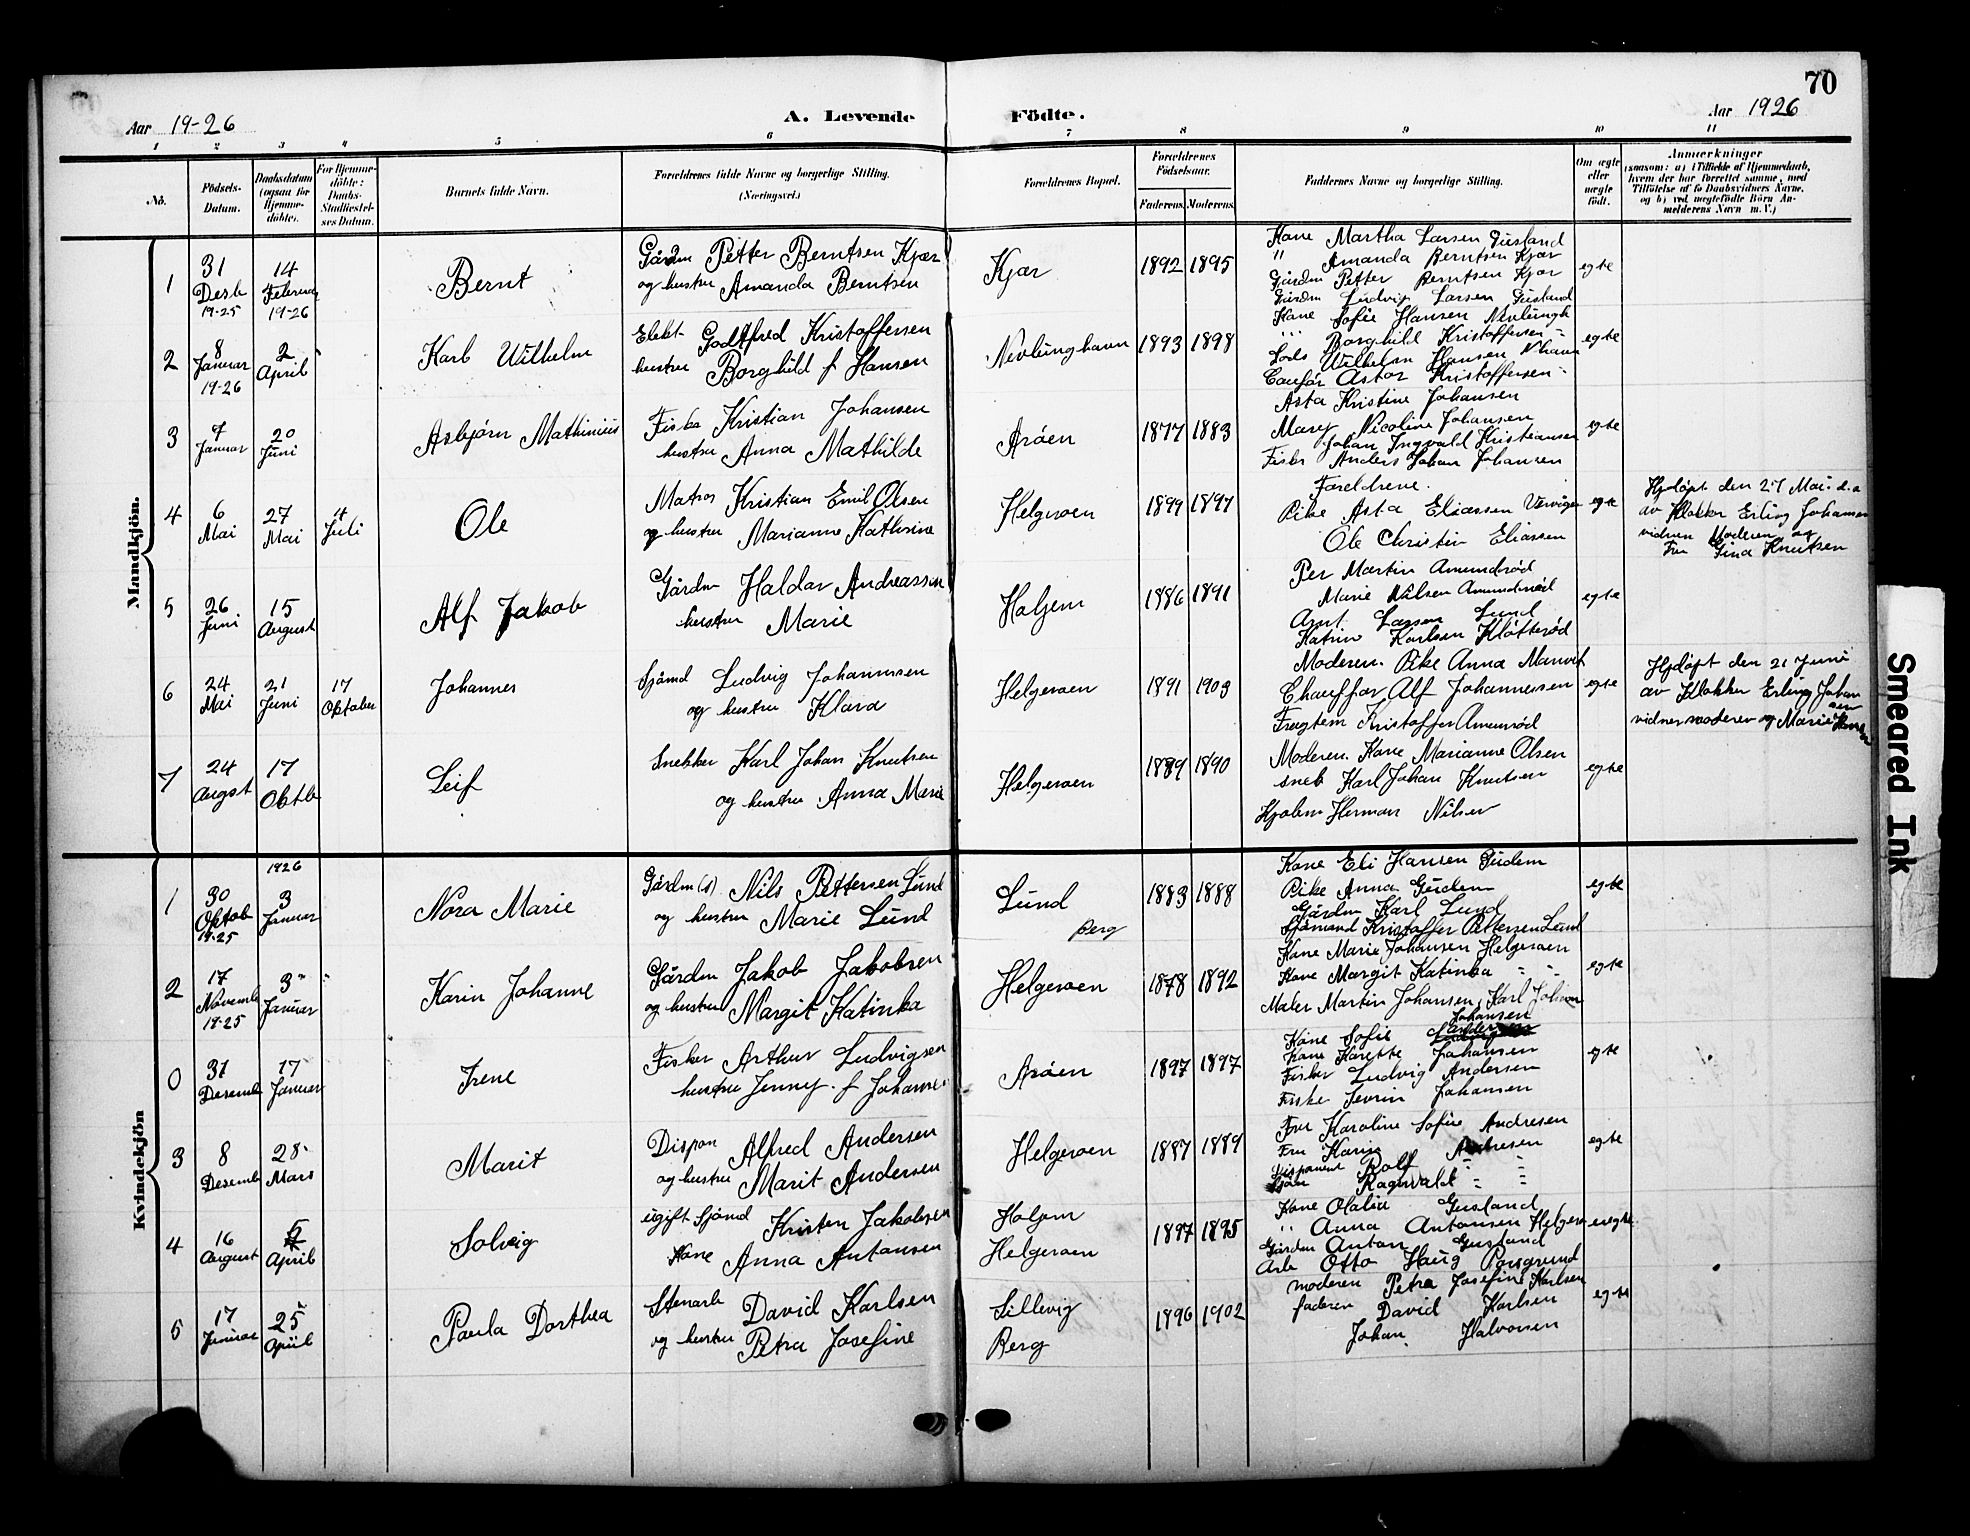 70
Aar 19-26
A. Levende Födte.
Aar 1926
1 2 3 4 5 6 7 8 9 10 11
No.
Födsels-Datum.
Daabsdatum (ogsaa for Hjemme-döbte).
For Hjemme-döbte: Daabs-Stadfæstel-ses Datum.
Barnets fulde Navn.
Forældrenes fulde Navne og borgerlige Stilling.
(Næringsvei.)
Forældrenes Bopæl.
Forældrenes Födselsaar.
Faderens. Moderens.
Faddernes Navne og borgerlige Stilling.
Om ægte eller uægte födt.
Anmærkninger
(saasom: a) i Tilfælde af Hjemmedaab, hvem der har forrettet samme, med Tilföielse af to Daabsvidners Navne, og b) ved uægtefödte Börn An-melderens Navn m. V.)
Mandkjön.
1
31 Desb 19-25
14 Februar 19-26
Bernt
Gårdm Petter Berntsen Kjær
og hustru Amanda Berntsen
Kjær
1892 1895
Kone Martha Larsen Gusland
" Amanda Berntsen Kjær
Gårdm Petter Berntsen Kjær
Gårdm Ludvig Larsen Gusland
egte
2
8 Januar 19-26
2 April
Karl Wilhelm
Elekt Godtfred Kristoffersen
hustru Borghild f Hansen
Nevlunghavn
1893 1898
Kone Sofie Hansen Nevlungh
Borghild Kristoffersen
Lods Wilhelm Hansen Nhavn
Astor Kristoffersen
egte
3
7 Januar
20 Juni
Asbjørn Mathinius
Fisker Kristian Johansen
hustru Anna Mathilde
Arøen
1877 1883
Asta Kristine Johansen
Mary Nicoline Johansen
Johan Ingvald Kristiansen
Fisker Anders Johan Johansen
egte
4
6 Mai
27 Mai
4 Juli
Ole
Matros Kristian Emil Olsen
og hustru Marianne Kathrine
Helgeroen
1899 1897
Foreldrene.
Pike Asta Eliassen
Ole Christin Eliassen
egte
Hjdøpt den 27 Mai. d.a
av Klokker Erling Johansen
vidner Moderen og
Fru Gina Knutsen
5
26 Juni
15 August
Alf Jakob
Gårdm Haldor Andreassen
hustru Marie
Holjem
1886 1891
Per Martin Amundrød
Marie Nilsen Amundrød
Arnt Larsen Lund
Katrin Karlsen Kløtterød
egte
6
24 Mai
21 Juni
17 Oktober
Johannes
Sjømd Ludvig Johannesen
og hustru Klara
Helgeroen
1891 1903
Moderen. Pike Anna
Chauffør Alf Johannesen
Kristoffer Amunrød
egte
Hjdøpt den 21 Juni
av Klokker Erling Johan
sen
vidner moderen og Marie
7
24 Augst
17 Oktb
Leif
Snekker Karl Johan Knutsen
og hustru Anna Marie
Helgeroen
1889 1890
Moderen. Kone Marianne Olsen
snek Karl Johan Knutsen
Herman Nilsen
egte
Kvindekjön
1926
1
30 Oktob 19-25
3 Januar
Nora Marie
Gårdm(s) Nils Pettersen Lund
og hustru Marie Lund
Lund
Berg
1883 1888
Kone Eli Hansen Gudem
Pike Anna Gudem
Gårdm Karl Lund
Sjømand Kristoffer Pettersen Lund
egte
2
17 Novemb 19-25
3 Januar
Karin Johanne
Gårdm Jakob Jakobsen
og hustru Margit Katinka
Helgeroen
1878 1892
Kone Marie Johansen Helgeroen
Kone Margit Katinka " "
Maler Martin Johansen, Karl Johan
Johansen
egte
0
31 Desemb
17 Januar
Irene
Fisker Arthur Ludvigsen
hustru Jenny f Johanse
Arøen
1897 1897
Kone Sofie
Kone Karette Johansen
Fisker Ludvig Andersen
Fiske Severin Johansen
egte
3
8 Desemb
28 Mars
Marit
Dispon Alfred Andersen
og hustru Marit Andersen
Helgeroen
1887 1889
Fru Karoline Sofie Andresen
Fru Karin Andresen
Disponent Rolf " "
Ragnvald " "
egte
4
16 August
5 April
Solveig
ugift Sjömd Kristen Jakobsen
Kone Anna Antonsen
Holjem
Helgeroen
1897 1895
Kone Olalia Gusland
" Anna Antonsen Helgero
Gårdm Anton Gusland
Arb Otto Haug Porsgrund
uegte
5
17 Januar
25 April
Paula Dorthea
Stenarb David Karlsen
og hustru Petra Josefine
Sillevig
Berg
1896 1902
moderen Petra Josefine Karlsen
faderen David Karlsen
Johan Halvorsen
egte
Smeared Ink